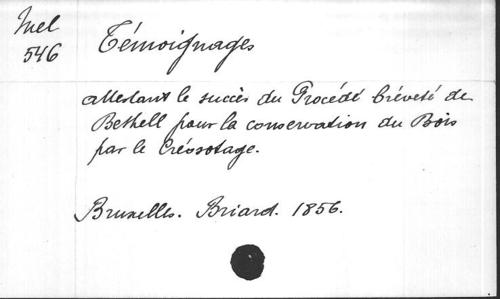 Mel
546
Témoignages
attestant le succès du Procédé bréveté de
Bethell pour la conservation du Bois
par le Créosotage.
Bruxelles. Briard. 1856.